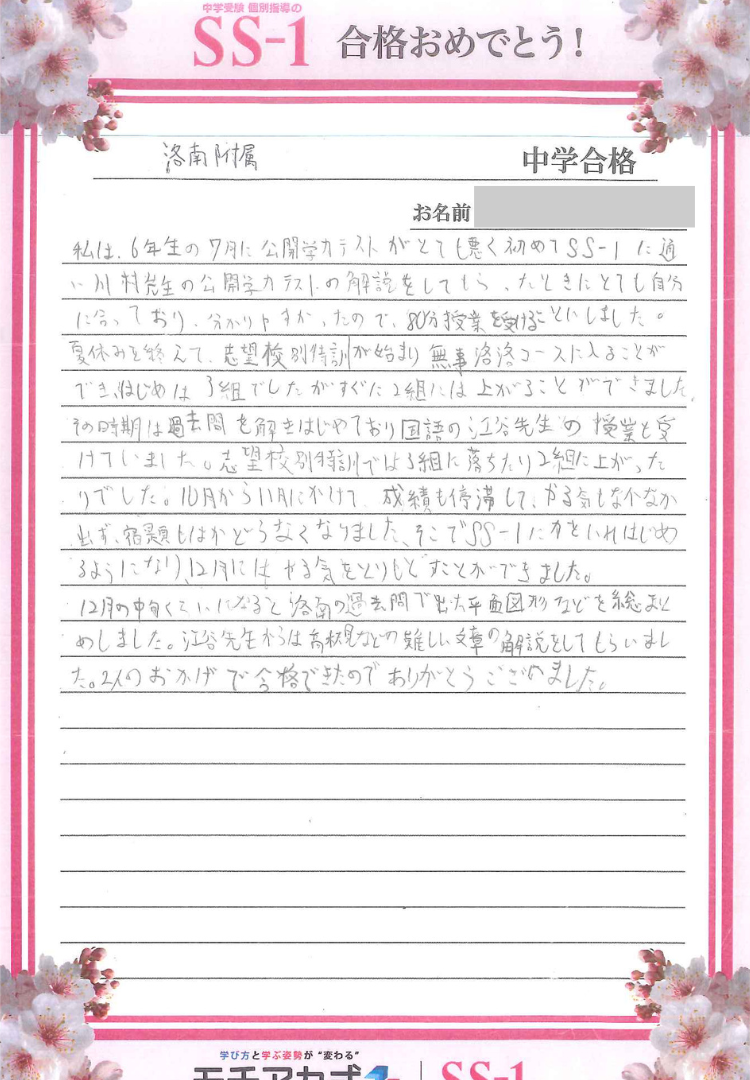 中学受験 個別指導の
SS-1 合格おめでとう!
洛南附属 中学合格
お名前
私は、6年生の7月に公開学力テストがとても悪く初めてSS-1に通
い川村先生の公開学力テストの解説をしてもらったときにとても自分
に合っており、分かりやすかったので、80分授業を受けることにしました。
夏休みを終えて、志望校別特訓が始まり無事洛洛コースに入ることが
でき、はじめは3組でしたがすぐに2組には上がることができました。
その時期は過去問を解きはじめており国語の江谷先生の授業も受
けていました。志望校別特訓では3組に落ちたり2組に上がった
りでした。10月から11月にかけて、成績も停滞して、やる気もなかなか
出ず、宿題もはかどらなくなりました、そこでSS-1に力をいれはじめ
るようになり、12月にはやる気をとりもどすことができました。
12月の中旬くらいになると洛南の過去問で出た平面図形などを総まと
めしました。江谷先生からは高校見などの難しい文章の解説をしてもらいまし
た。2人のおかげで合格できたのでありがとうございました。
学び方と学ぶ姿勢が"変わる"
SS-1